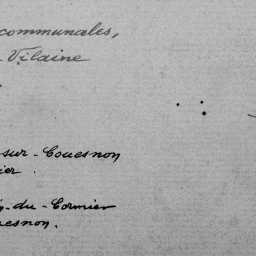 communales,
Vilaine
sur-Couesnon
ier.
-du-Cormier
uesnon.